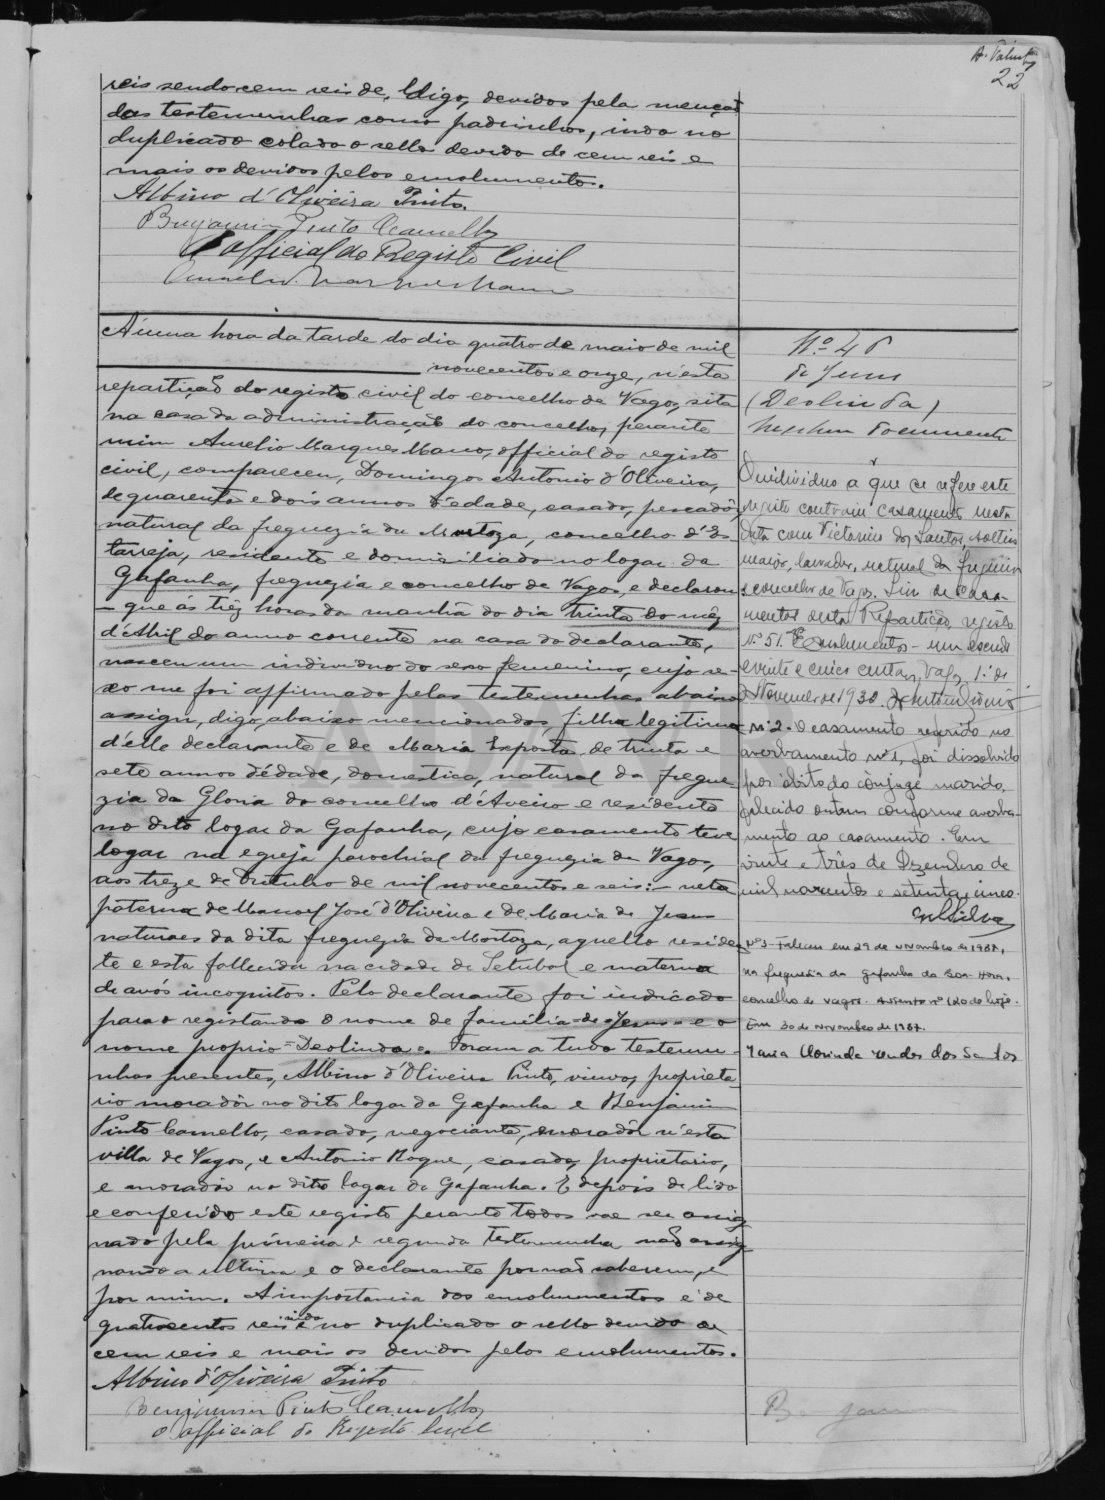 22
reis sendo cem reis de, digo, devidos pela menção
das testemunhas como padrinhos, indo no
duplicado colado o sello devido de cem reis e
mais os devidos pelos emolumentos.
Albino d'Oliveira Pinto.
Benjamin Pinto Camello
O official do Registo Civil
A' uma hora da tarde do dia quatro de maio de mil
novecentos e onze, n'esta
repartição do registo civil do concelho de Vagos, sita
na casa da administração do concelho, perante
mim Aurelio Marques Mano, official do registo
civil, compareceu, Domingos Antonio d'Oliveira,
de quarenta e dois annos d'edade, casado, pescadôr,
natural da freguezia da Murtoza, concelho d'Es-
tarreja, residente e domiciliado no logar da
Gafanha, freguezia e concelho de Vagos, e declarou
- que ás trêz horas da manhã do dia trinta do mêz
d'Abril do anno corrente na casa do declarante,
nasceu um individuo do sexo femenino, cujo se-
xo me foi affirmado pelas testemunhas abaixo
assign, digo, abaixo mencionadas, filha legitima
d'elle declarante e de Maria Exposta, de trinta e
sete annos d'édade, domestica, natural da fregue
zia da Gloria do concelho d'Aveiro e residente
no dito logar da Gafanha, cujo casamento teve
logar na egreja parochial da freguezia de Vagos,
aos treze de Outubro de mil novecentos e seis: - neta
paterna de Manoel José d'Oliveira e de Maria de Jesus
naturaes da dita freguezia da Mortoza, aquelle residen
te e esta fallecida na cidade de Setubal e materna
de avós incognitos. Pelo declarante foi indicado
para o registando o nome de familia = de Jesus = e o
nome proprio = Deolinda =. Foram a tudo testemu-
nhas presentes, Albino d'Oliveira Pinto, viuvo, propriete
rio morador no dito logar da Gafanha e Benjamin
Pinto Camello, casado, negociante, moradôr n'esta
villa de Vagos, e Antonio Roque, casado, proprietario,
e moradôr no dito logar da Gafanha. E depois de lido
e conferido este registo perante todos vae ser assig
nado pela primeira e segunda testemunha não assig
nando a ultima e o declarante por não saberem, e
por mim. A importancia dos emolumentos é de
quatrocentos reis indo no duplicado o sello devido de
cem reis e mais os devidos pelos emolumentos.
Albino d'Oliveira Pinto
Benjamin Pinto Camello
O official do Registo Civil
Nº 46
de Jesus
(Deolinda)
Nenhum documento
O individuo a que se refere este
registo contraiu casamento nesta
data com Victorino dos Santos, solteiro
maior, lavrador, natural da freguesia
e concelho de Vagos. Livro de casa-
mentos desta Repartição, registo
Nº 51. Emolumentos - um escudo
e vinte e cinco centavos, Vagos, 1 de
Novembro de 1930.
Nº 2 - O casamento referido no
averbamento nº 1, foi dissolvido
por óbito do cônjuge marido,
falecido ontem conforme averba-
mento ao casamento. Em
vinte e três de Dezembro de
mil novecentos e setenta e cinco.
Nº 3 - Faleceu em 29 de novembro de 1987,
na freguesia da Gafanha da Boa-Hora,
concelho de Vagos. Assento nº 120 de hoje.
Em 30 de Novembro de 1987.
Maria Clorinda dos Santos
ADAVR